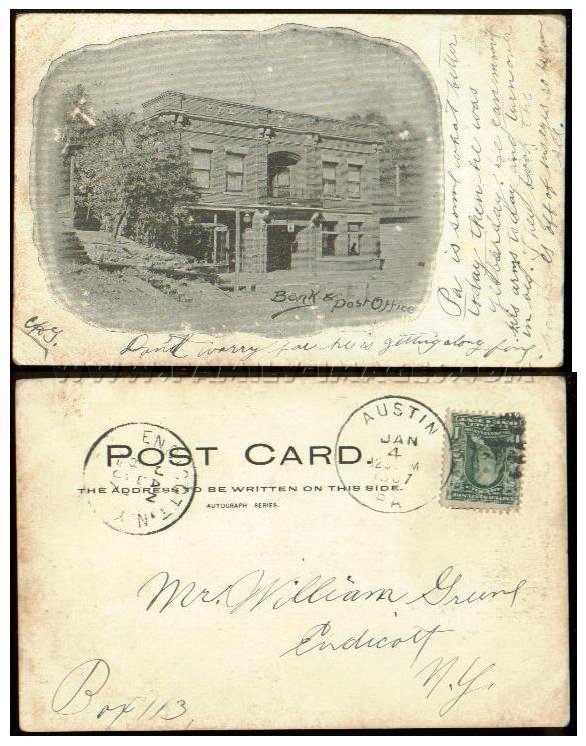 Bank & Post Office
Pa is some what better
today then he was
yesterday. he can move
his arms today and turn over
in bed. I just took the
C.A.G.
Don't worry for he is getting along fine.
WWW.FAMILY-IMAGES.COM
POST CARD.
THE ADDRESS TO BE WRITTEN ON THIS SIDE.
AUTOGRAPH SERIES.
ENDICOTT
JAN
N.Y.
AUSTIN
JAN
4
1907
PA
Mr. William Grune
Endicott
N.Y.
Box 113,